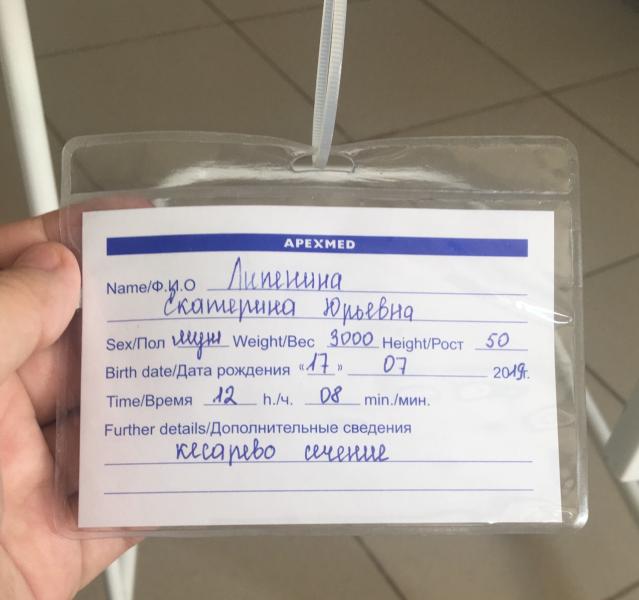 APEXMED
Name/Ф.И.О Липенина
Екатерина Юрьевна
Sex/Пол муж Weight/Вес 3000 Height/Рост 50
Birth date/Дата рождения «17» 07 2019г.
Time/Время 12 h./ч. 08 min./мин.
Further details/Дополнительные сведения
кесарево сечение